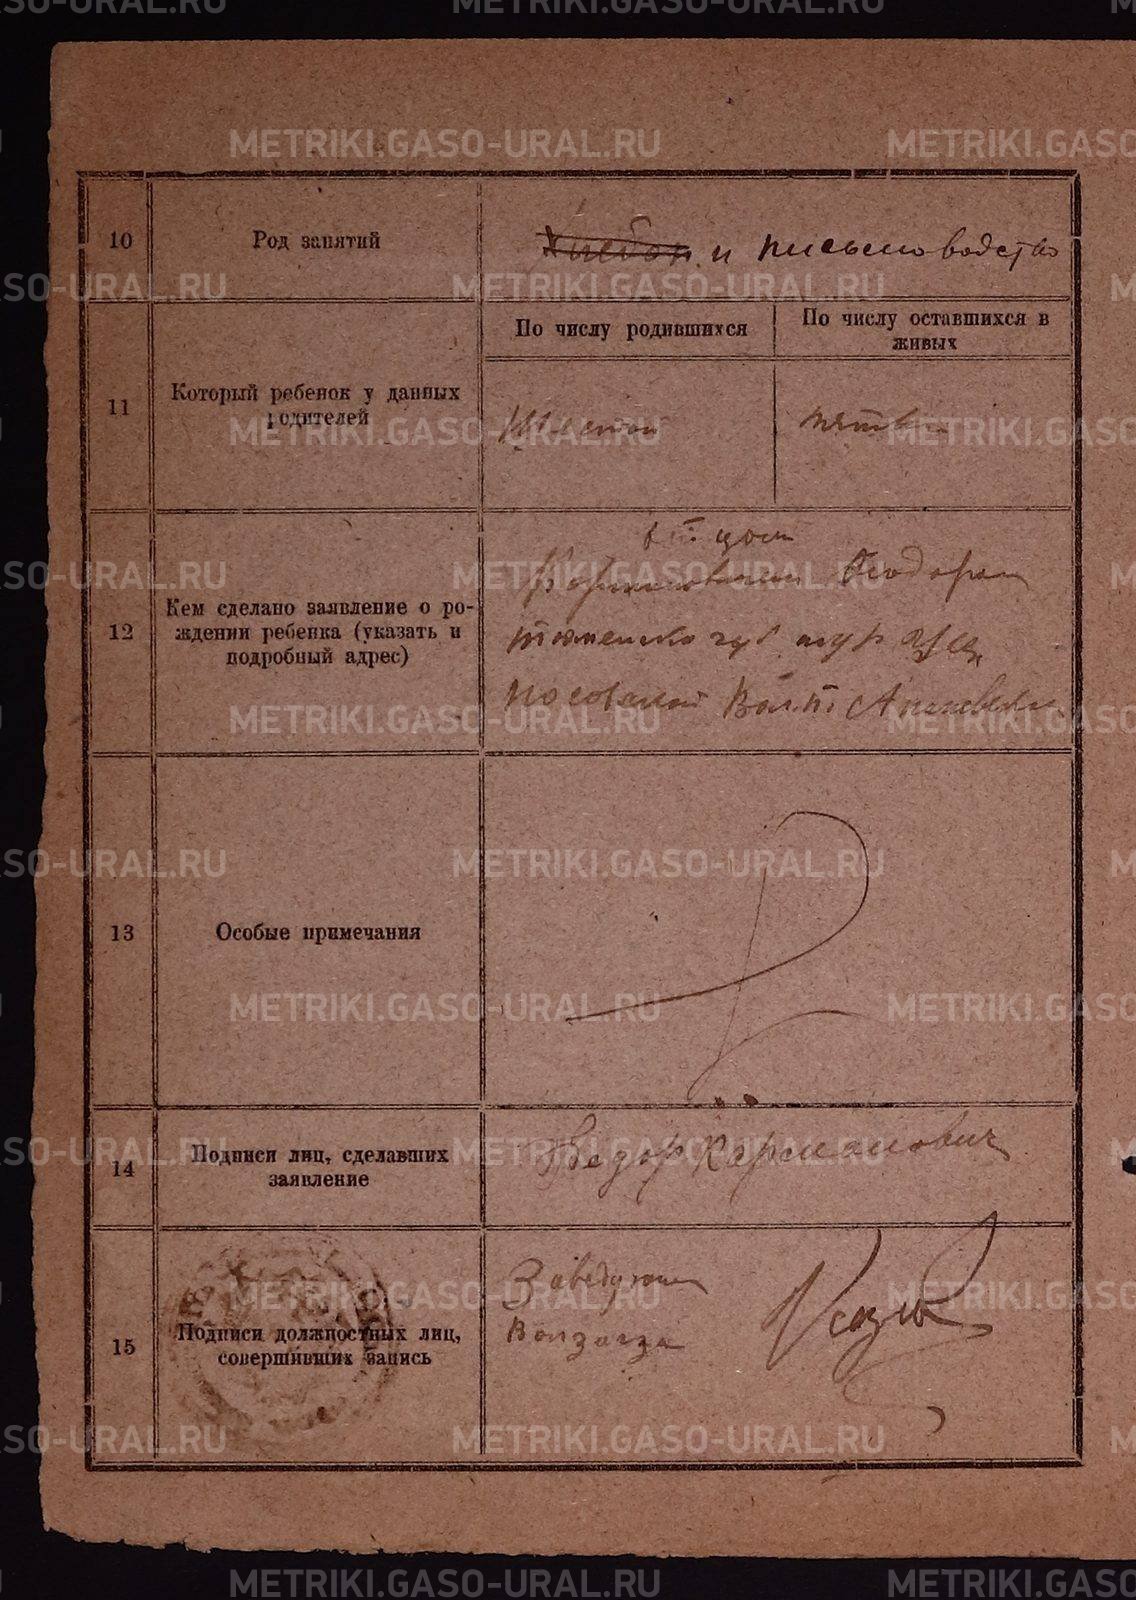 METRIKI.GASO-URAL.RU
10
Род занятий
и письмоводство
11
Который ребенок у данных
родителей
По числу родившихся
По числу оставшихся в
живых
Шестой
пятый
12
Кем сделано заявление о ро-
ждении ребенка (указать и
подробный адрес)
отцом
Кармановичем Феодором
тюменской губ тур
Волости
13
Особые примечания
14
Подписи лиц, сделавших
заявление
Федор Карманович
15
Подписи должностных лиц,
совершивших запись
Заведующий
Волзагза